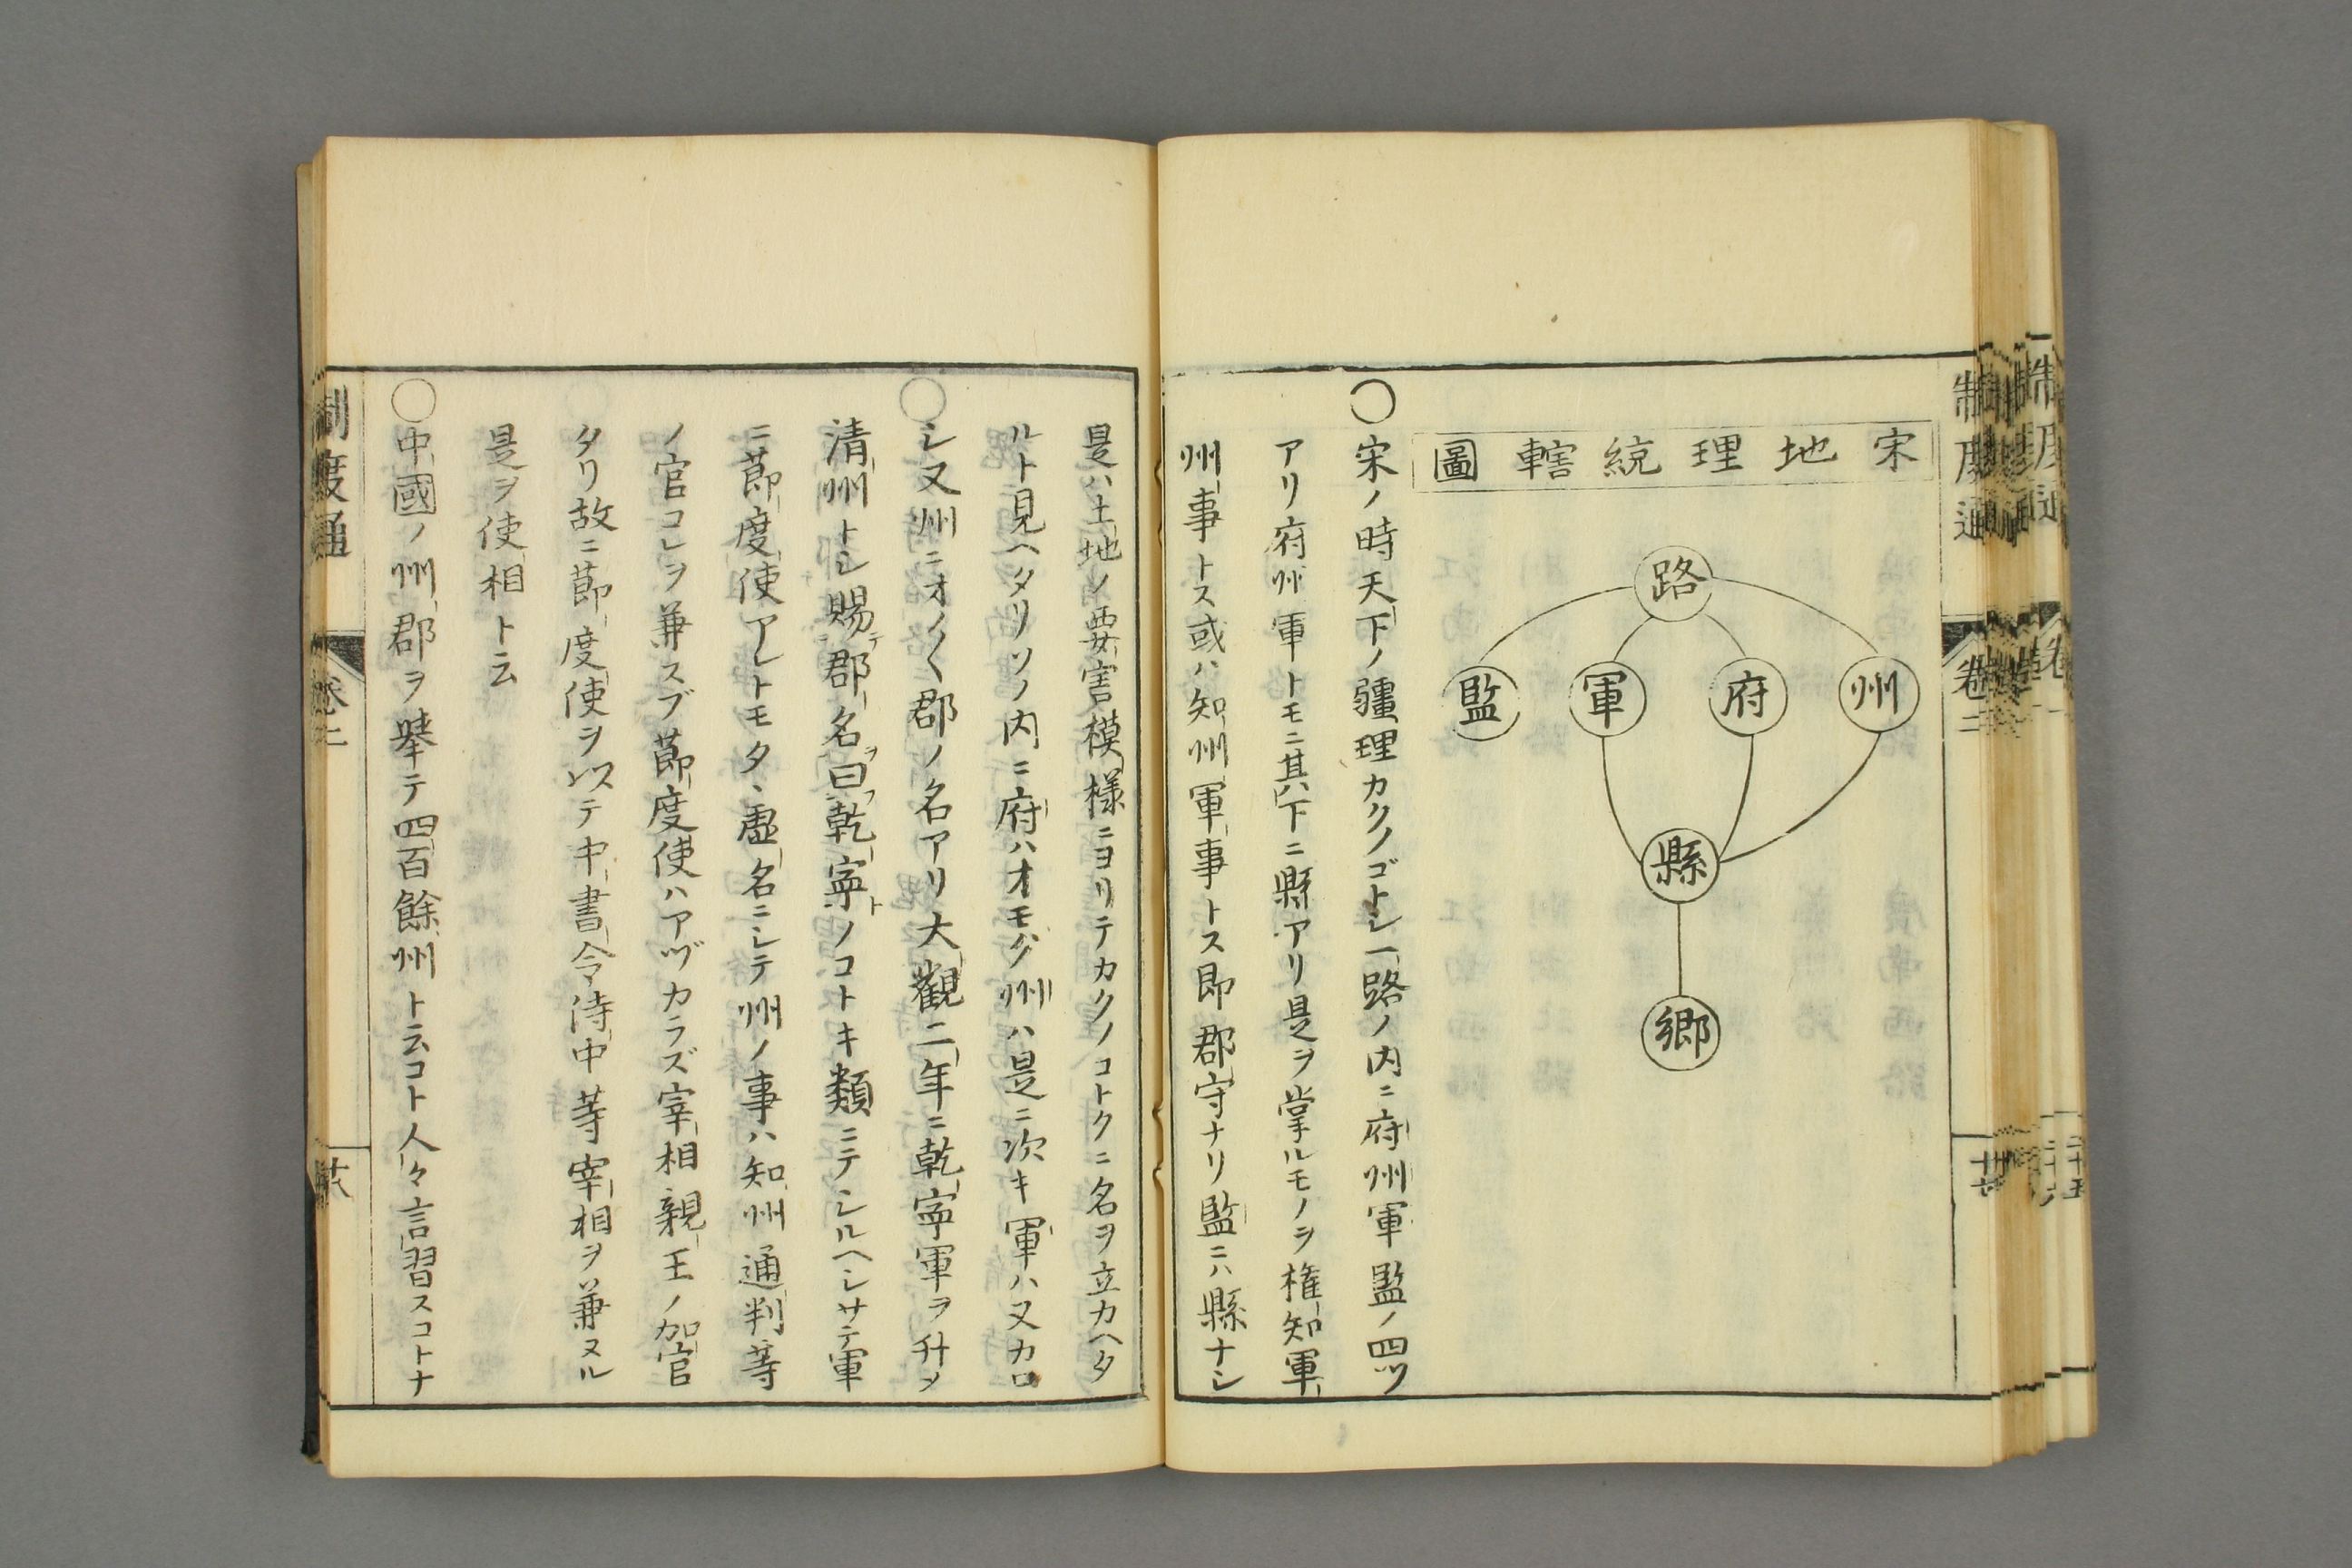 宋地理統轄圖
路
州
府
軍
監
縣
鄉
○宋ノ時天下ノ疆理カクノゴトシ一路ノ内ニ府州軍監ノ四ツ
アリ府州軍トモニ其下ニ縣アリ是ヲ掌ルモノヲ権知軍
州事トス或ハ知州軍事トス即郡守ナリ監ニハ縣ナシ
是ハ土地ノ要害模様ニヨリテカクノコトクニ名ヲ立カヘタ
ルト見ヘタリソノ内ニ府ハオモク州ハ是ニ次キ軍ハ又カロ
○シ又州ニオノ〱郡ノ名アリ大觀二年ニ乾寧軍ヲ升メ
清州トシ賜テ郡名ヲ曰フ乾寧トノコトキ類ニテシルヘシサテ軍
ニ節度使アレトモタヽ虚名ニシテ州ノ事ハ知州通判等
ノ官コレヲ兼スブ節度使ハアヅカラズ宰相親王ノ加官
タリ故ニ節度使ヲシテ中書令侍中等宰相ヲ兼ヌル
是ヲ使相ト云
○中國ノ州郡ヲ擧テ四百餘州ト云コト人々言習スコトナ
制度通
卷二
制度通
卷二